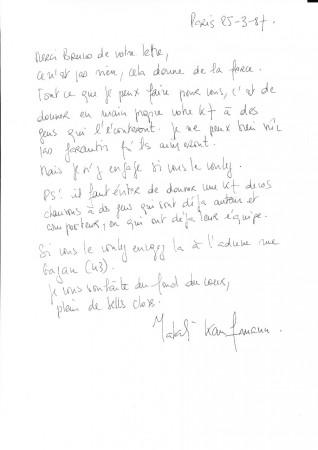 Paris 25-3-87.
Merci Bruno de votre lettre,
ce n'est pas rien, cela donne de la force.
Tout ce que je peux faire pour vous, c'est de
donner en main propre votre K7 à des
gens qui l'écouteront. Je ne peux bien sûr
pas garantir qu'ils aimeront.
Mais je m'y engage si vous le voulez.
PS: il faut éviter de donner une K7 de vos
chansons à des gens qui sont déjà auteurs et
compositeurs, ou qui ont déjà leur équipe.
Si vous le voulez envoyez la à l'adresse rue
Gazan (43).
Je vous souhaite du fond du coeur,
plein de belles choses.